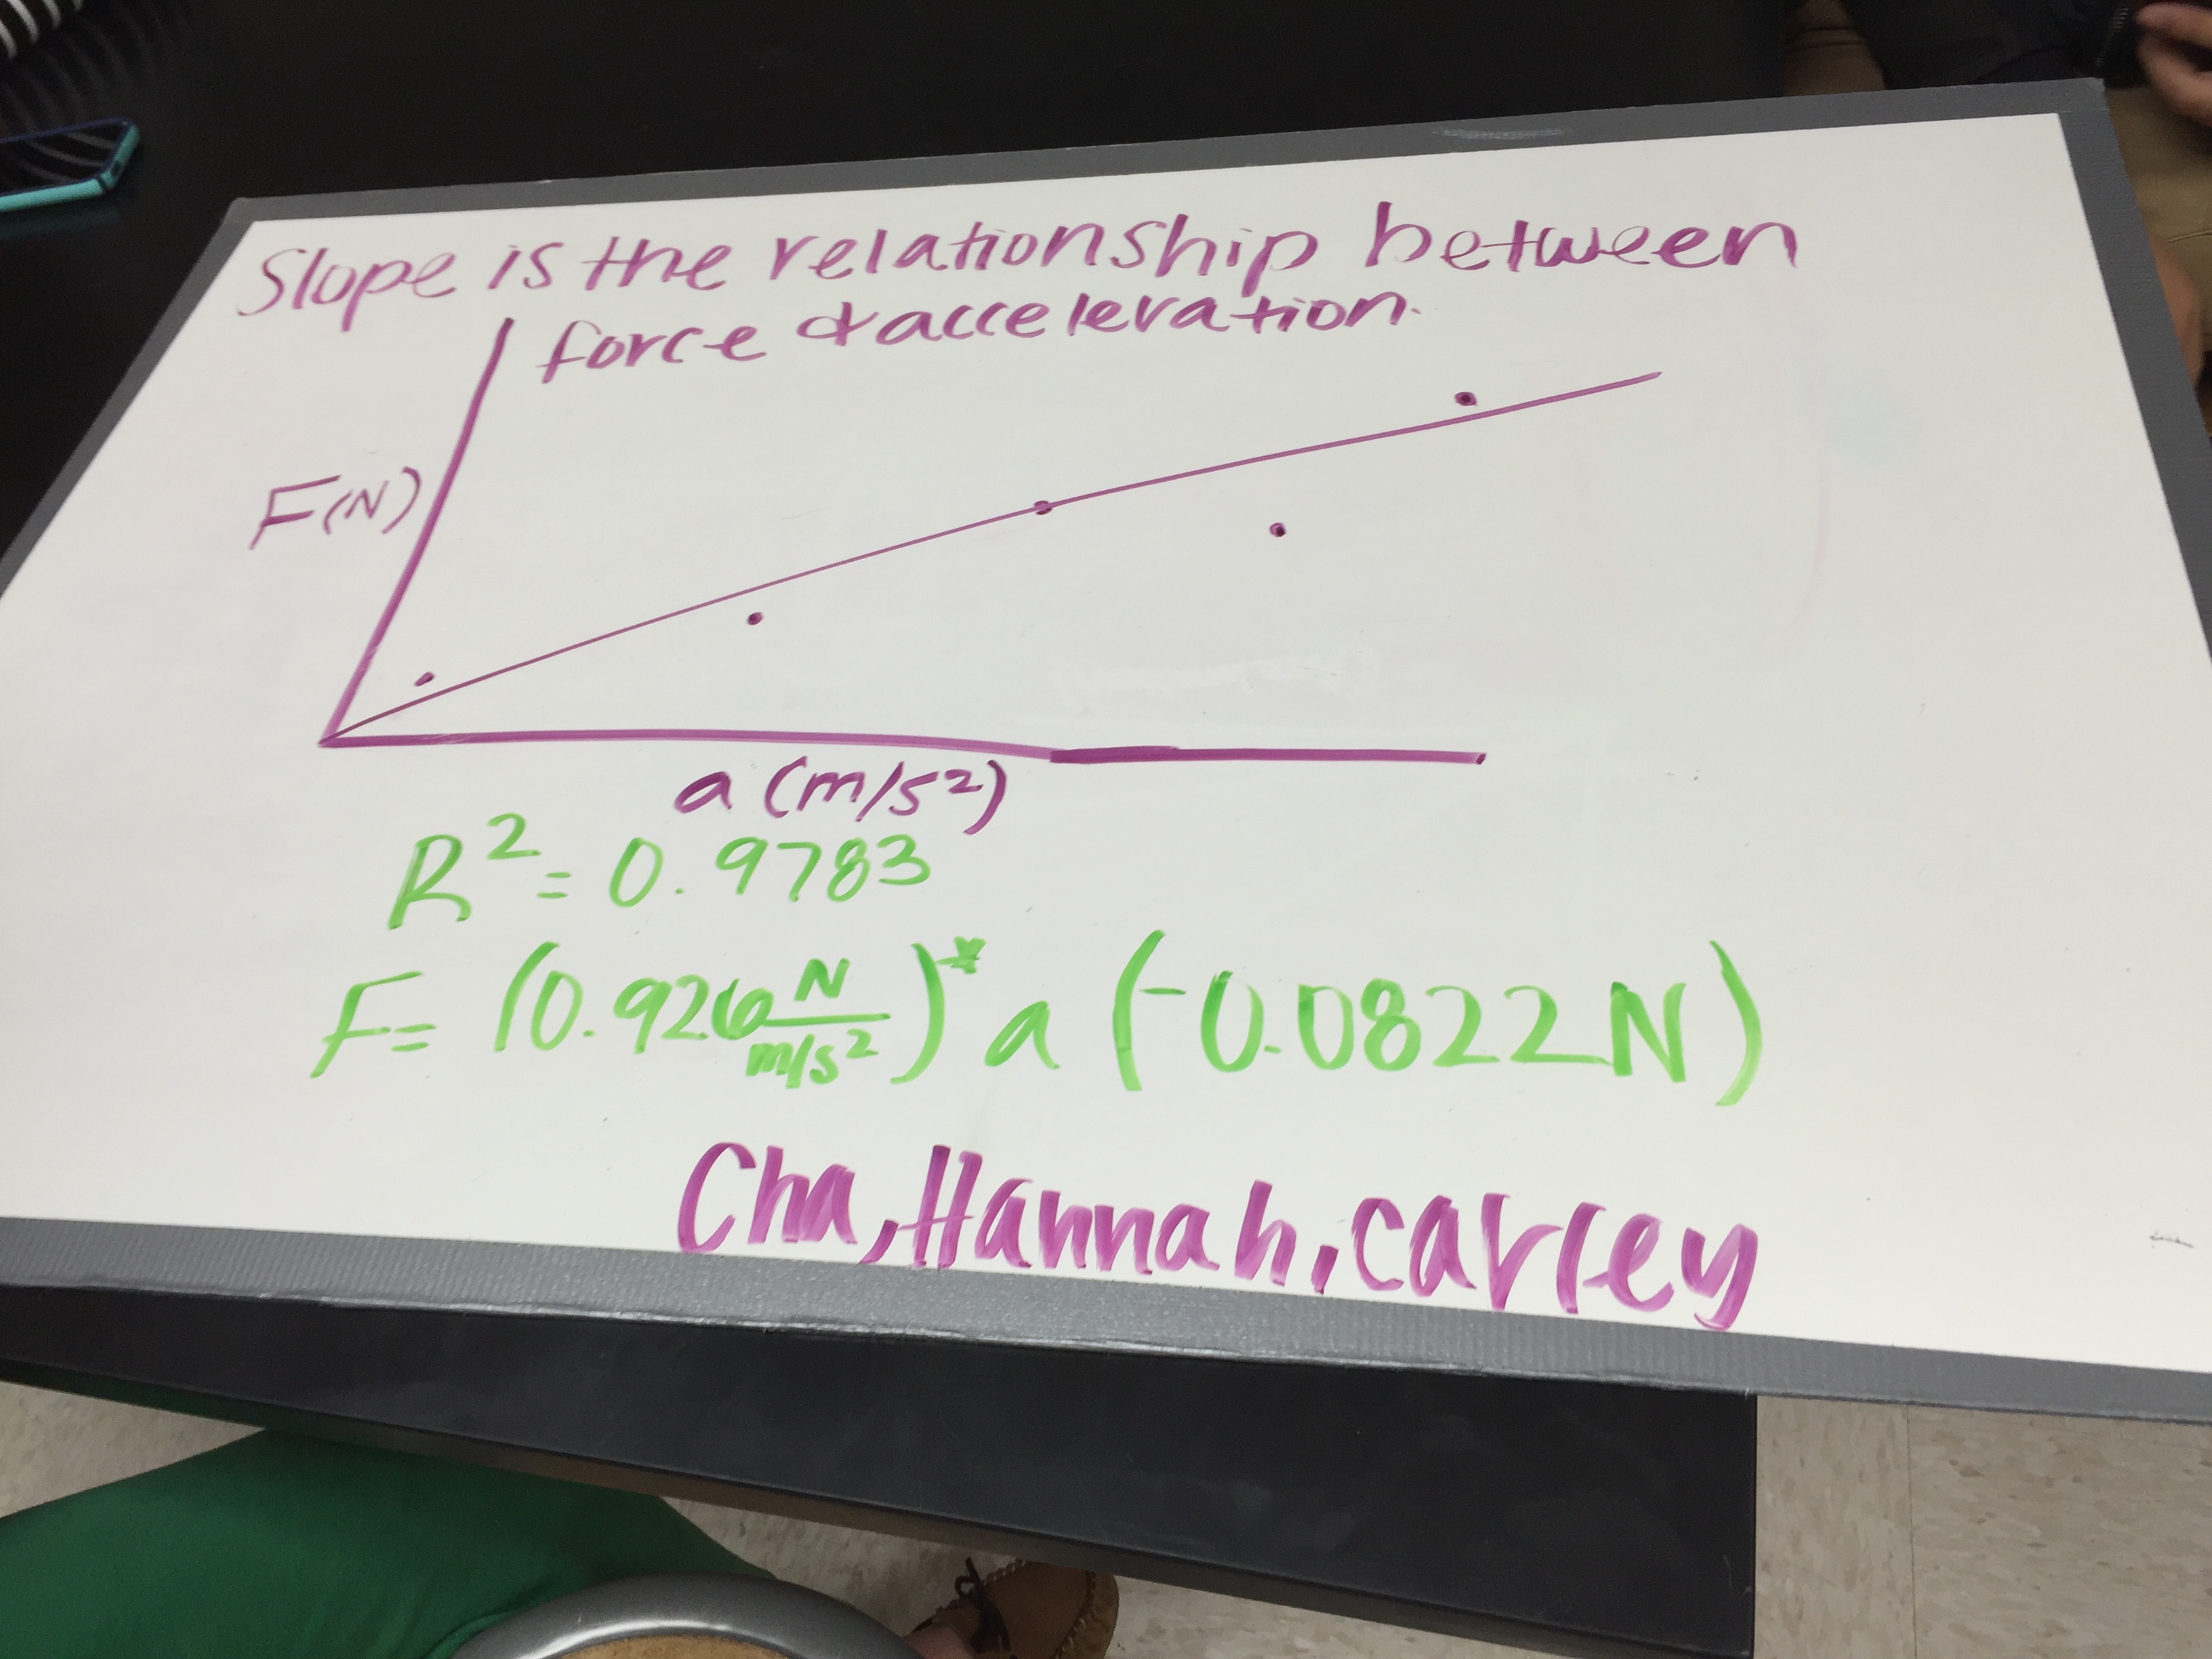 Slope is the relationship between
force & acceleration.
F(N)
a (m/s²)
R² = 0.9783
F= (0.926 N/m/s²)* a (-0.0822N)
Cha, Hannah, Carley